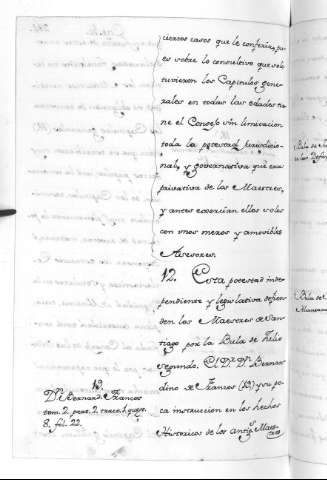 ciertos casos que le confieren, pu
es sobre lo consultivo que solo
tuvieron los Capitulos gene
rales en todas las edades tie
ne el Consejo sin limitacion
toda la potestad jurisdicio
nal, y governativa que era
privativa de los Maestres,
y antes exercian ellos solos
con unos meros y amovibles
Asesores.
12. Esta potestad inde
pendiente y legislativa defien
den los Maestres de San
tiago por la Bula de
segundo. El Dr. Dn. Bernar
dino de Frances (10) su po
ca instruccion en los hechos
Historicos de los antigs. Maest
10.
Dn. Bernard. Frances
tom. 2. part. 2. tract. 1. quest.
8. fol. 22.
Bula de
Bula de